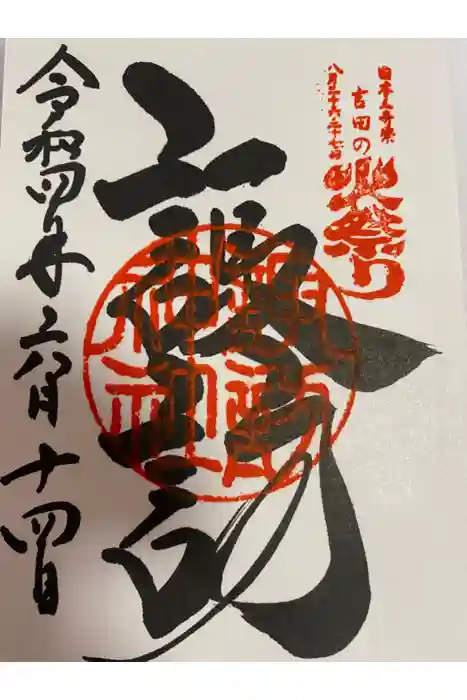 日本三奇祭
吉田の火祭り
八月二十六二十七日
諏訪
諏訪神社
令和四年六月十四日